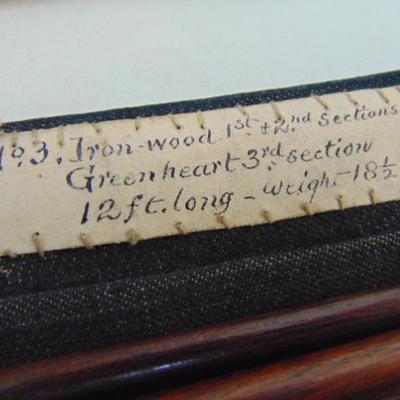 No. 3. Iron-wood 1st & 2nd Sections
Greenheart 3rd section
12 ft. long - weight 18½